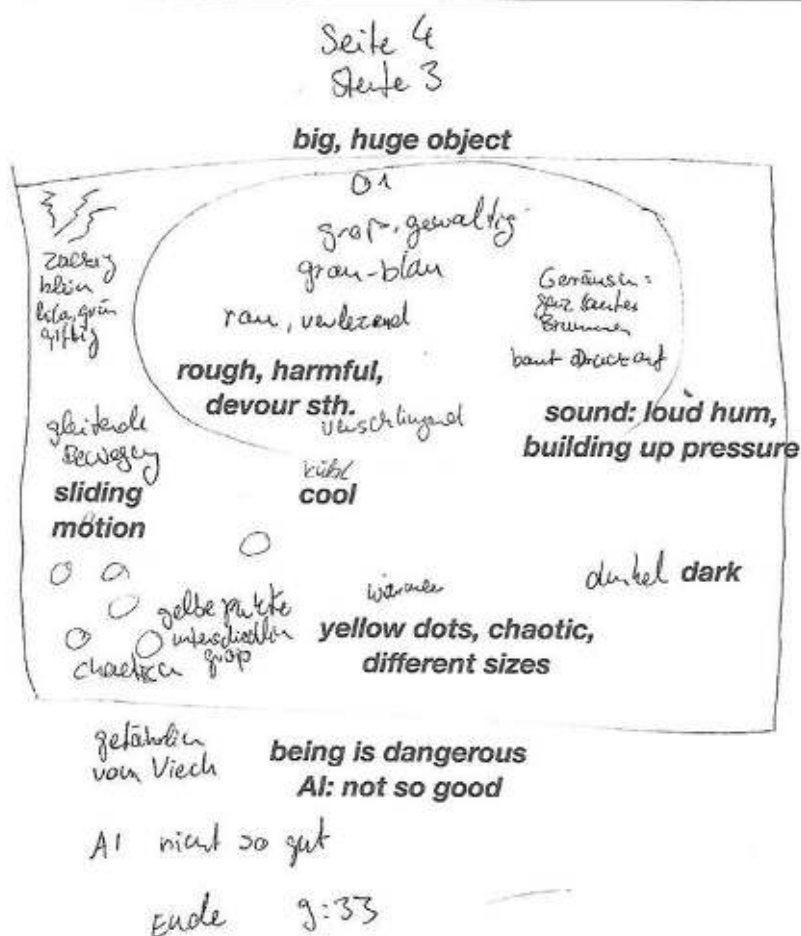 Seite 4
Stufe 3
big, huge object
01
groß, gewaltig
grau-blau
zackig
klein
lila, grün
giftig
Geräusch:
ganz lautes
Brummen
baut Druck auf
rau, verletzend
rough, harmful,
devour sth.
verschlingend
sound: loud hum,
building up pressure
gleitende
Bewegung
sliding
motion
kühl
cool
dunkel dark
wärmer
gelbe Punkte
unterschiedlich
groß
chaotisch
yellow dots, chaotic,
different sizes
gefährlich
vom Viech
being is dangerous
AI: not so good
AI nicht so gut
Ende 9:33